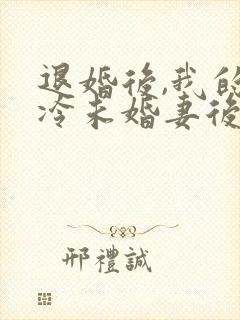 退婚後,我的
冷未婚妻後
邢禮誠